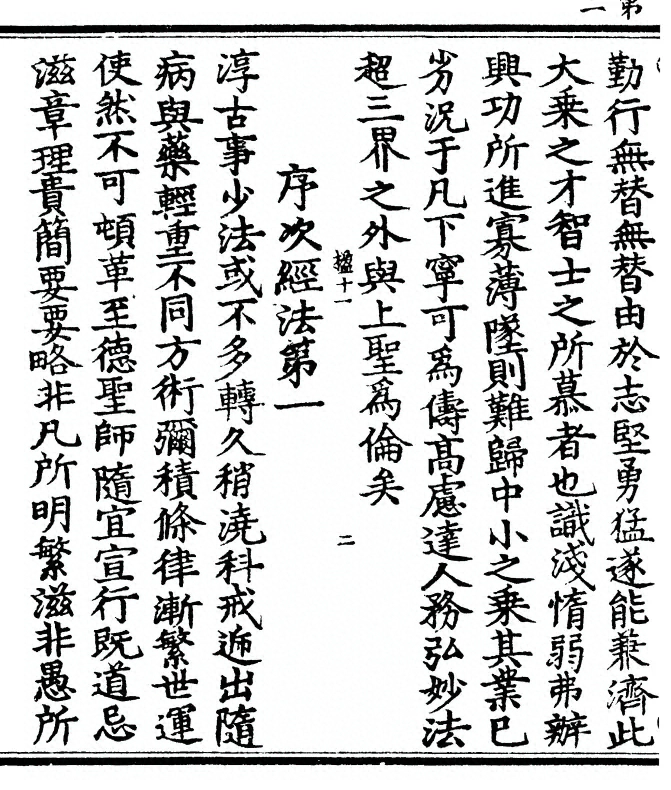 第一
勤行無替無替由於志堅勇猛遂能兼濟此
大乘之才智士之所慕者也識淺惰弱弗辦
興功所進寡薄墜則難歸中小之乘其業巳
劣況于凡下寧可為儔高慮達人務弘妙法
超三界之外與上聖為倫矣
楹十一
二
序次經法第一
淳古事少法或不多轉久稍澆科戒遞出隨
病與藥輕重不同方術彌積條律漸繁世運
使然不可頓革至德聖師隨宜宣行既道忌
滋章理貴簡要要略非凡所明繁滋非愚所